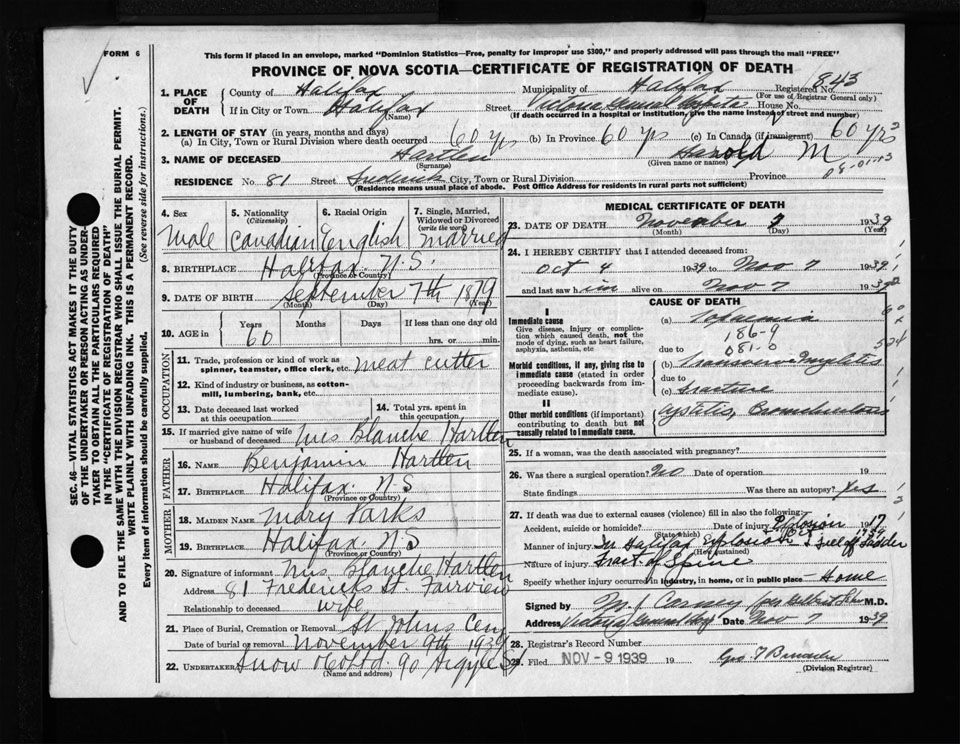 FORM 6
This form if placed in an envelope, marked "Dominion Statistics—Free, penalty for improper use $300," and properly addressed will pass through the mail "FREE"
PROVINCE OF NOVA SCOTIA—CERTIFICATE OF REGISTRATION OF DEATH
843
1. PLACE OF DEATH
County of Halifax Municipality of Halifax Registered No.
(For use of Registrar General only)
If in City or Town Halifax Street Victoria General Hospital House No.
(Name) (If death occurred in a hospital or institution, give the name instead of street and number)
2. LENGTH OF STAY (in years, months and days)
(a) In City, Town or Rural Division where death occurred 60 yrs (b) In Province 60 yrs (c) In Canada (if immigrant) 60 yrs
3. NAME OF DECEASED Hartlen Harold M
(Surname) (Given name or names)
RESIDENCE No. 81 Street Frederick City, Town or Rural Division Province
(Residence means usual place of abode. Post Office Address for residents in rural parts not sufficient)
4. Sex Male
5. Nationality (Citizenship) Canadian
6. Racial Origin English
7. Single, Married, Widowed or Divorced (write the word) Married
8. BIRTHPLACE Halifax. N.S.
(Province or Country)
9. DATE OF BIRTH September 7th 1879
(Month) (Day) (Year)
10. AGE in Years 60 Months Days If less than one day old hrs. or min.
OCCUPATION
11. Trade, profession or kind of work as spinner, teamster, office clerk, etc. meat cutter
12. Kind of industry or business, as cotton-mill, lumbering, bank, etc.
13. Date deceased last worked at this occupation
14. Total yrs. spent in this occupation
15. If married give name of wife or husband of deceased Mrs Blanche Hartlen
FATHER
16. NAME Benjamin Hartlen
17. BIRTHPLACE Halifax. N.S
(Province or Country)
MOTHER
18. MAIDEN NAME Mary Parks
19. BIRTHPLACE Halifax. N.S
(Province or Country)
20. Signature of informant Mrs. Blanche Hartlen
Address 81 Frederick St. Fairview
Relationship to deceased wife
21. Place of Burial, Cremation or Removal St Johns Cem
Date of burial or removal November 9th 1939
22. UNDERTAKER Snow & Co Ltd. 90 Argyle St
(Name and address)
MEDICAL CERTIFICATE OF DEATH
23. DATE OF DEATH November 7 1939
(Month) (Day) (Year)
24. I HEREBY CERTIFY that I attended deceased from:
Oct 4 1939 to Nov 7 1939
and last saw him alive on Nov 7 1939
CAUSE OF DEATH
I
Immediate cause
Give disease, injury or complication which caused death, not the mode of dying, such as heart failure, asphyxia, asthenia, etc
(a)
186-9
due to 081-0
Morbid conditions, if any, giving rise to immediate cause (stated in order proceeding backwards from immediate cause).
(b) Transverse Myelitis
due to
(c) fracture
II
Other morbid conditions (if important) contributing to death but not causally related to immediate cause.
Cystitis,
25. If a woman, was the death associated with pregnancy?
26. Was there a surgical operation? No Date of operation 19
State findings Was there an autopsy? Yes
27. If death was due to external causes (violence) fill in also the following:
Accident, suicide or homicide? Date of injury Explosion 1917
(State which)
Manner of injury In Halifax Explosion & fell off ladder
(How sustained)
Nature of injury Fract. of Spine
Specify whether injury occurred in industry, in home, or in public place Home
Signed by M.D.
Address Victoria General Hosp Date Nov 7 1939
28. Registrar's Record Number
29. Filed NOV -9 1939 19
(Division Registrar)
SEC. 46—VITAL STATISTICS ACT MAKES IT THE DUTY OF THE UNDERTAKER OR PERSON ACTING AS UNDERTAKER TO OBTAIN ALL THE PARTICULARS REQUIRED IN THE "CERTIFICATE OF REGISTRATION OF DEATH"
AND TO FILE THE SAME WITH THE DIVISION REGISTRAR WHO SHALL ISSUE THE BURIAL PERMIT.
WRITE PLAINLY WITH UNFADING INK. THIS IS A PERMANENT RECORD.
Every item of information should be carefully supplied. (See reverse side for instructions.)